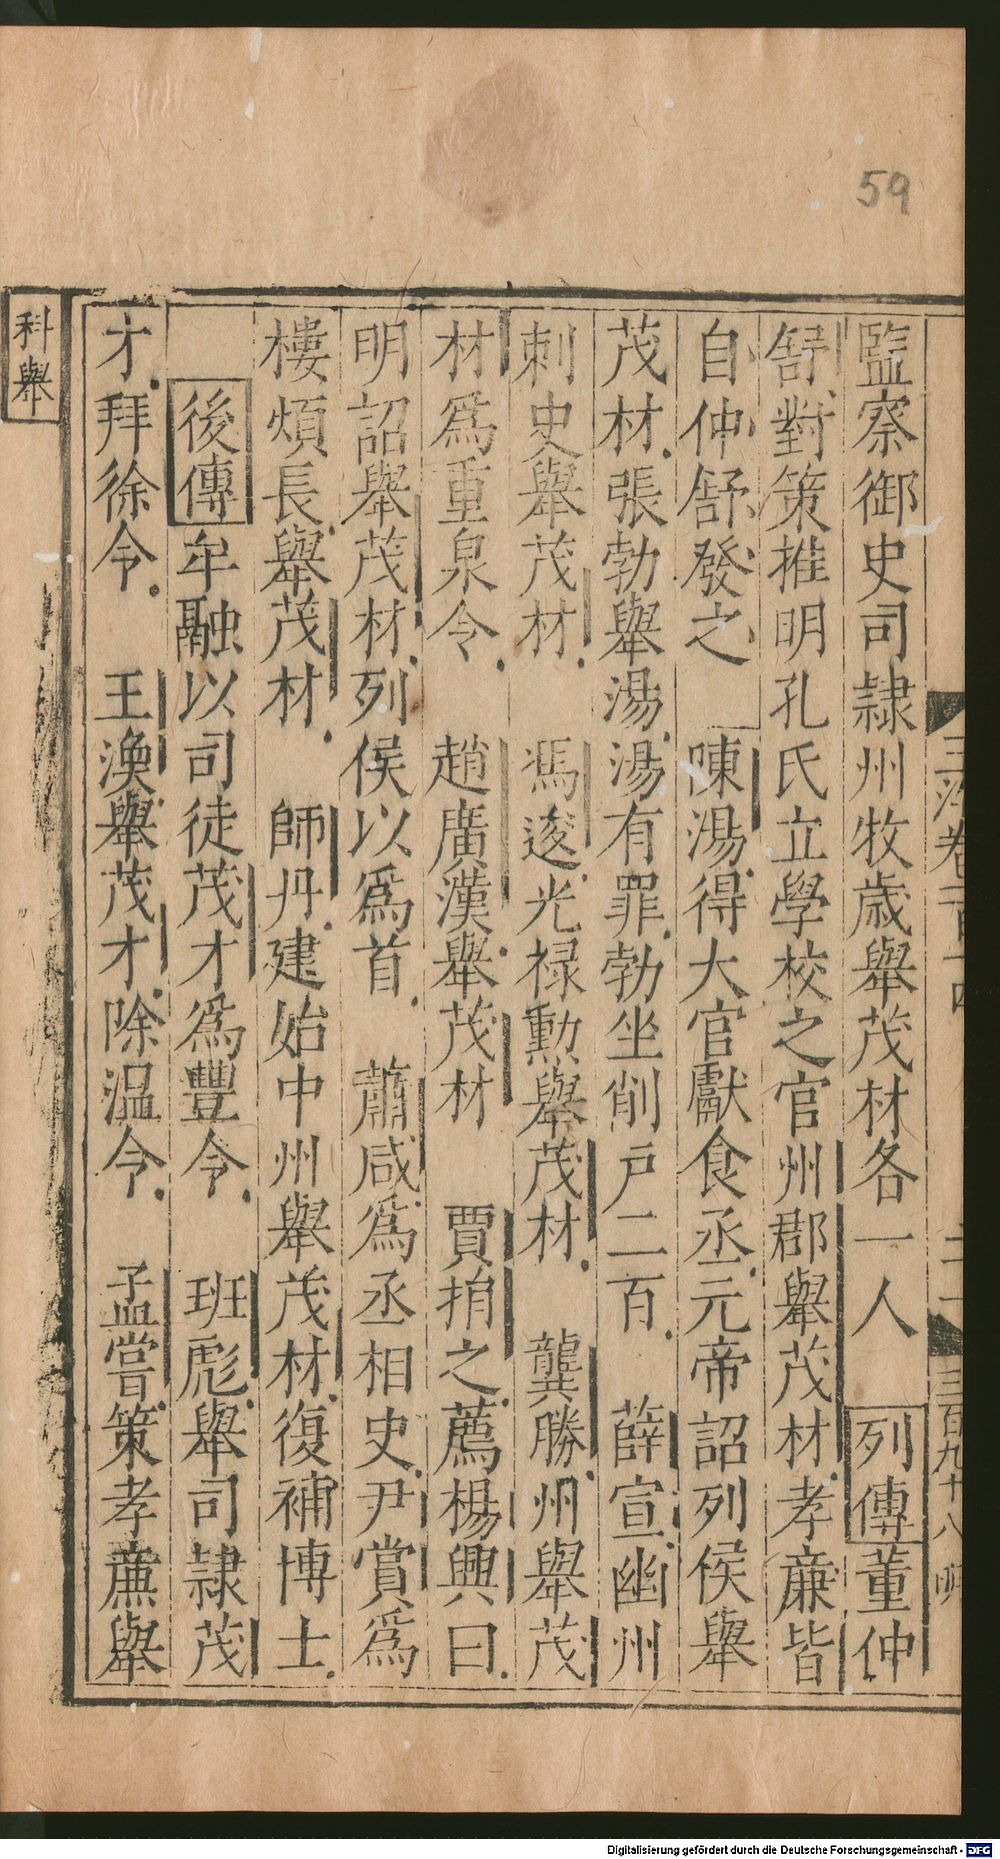 59
監察御史司隷州牧歲舉茂材各一人　列傳董仲
舒對策推明孔氏立學校之官州郡舉茂材孝廉皆
自仲舒發之　陳湯得大官獻食丞元帝詔列侯舉
茂材張勃舉湯湯有罪勃坐削戸二百　薛宣幽州
刺史舉茂材　馮逡光祿勳舉茂材　龔勝州舉茂
材爲重泉令　趙廣漢舉茂材　賈捐之薦楊興曰
明詔舉茂材列侯以爲首　蕭咸爲丞相史尹賞爲
樓煩長舉茂材　師丹建始中州舉茂材復補博士
後傳牟融以司徒茂才爲豐令　班彪舉司隷茂
才拜徐令　王渙舉茂才除温令　孟嘗策孝廉舉
科舉
三百九十八
Digitalisierung gefördert durch die Deutsche Forschungsgemeinschaft - DFG